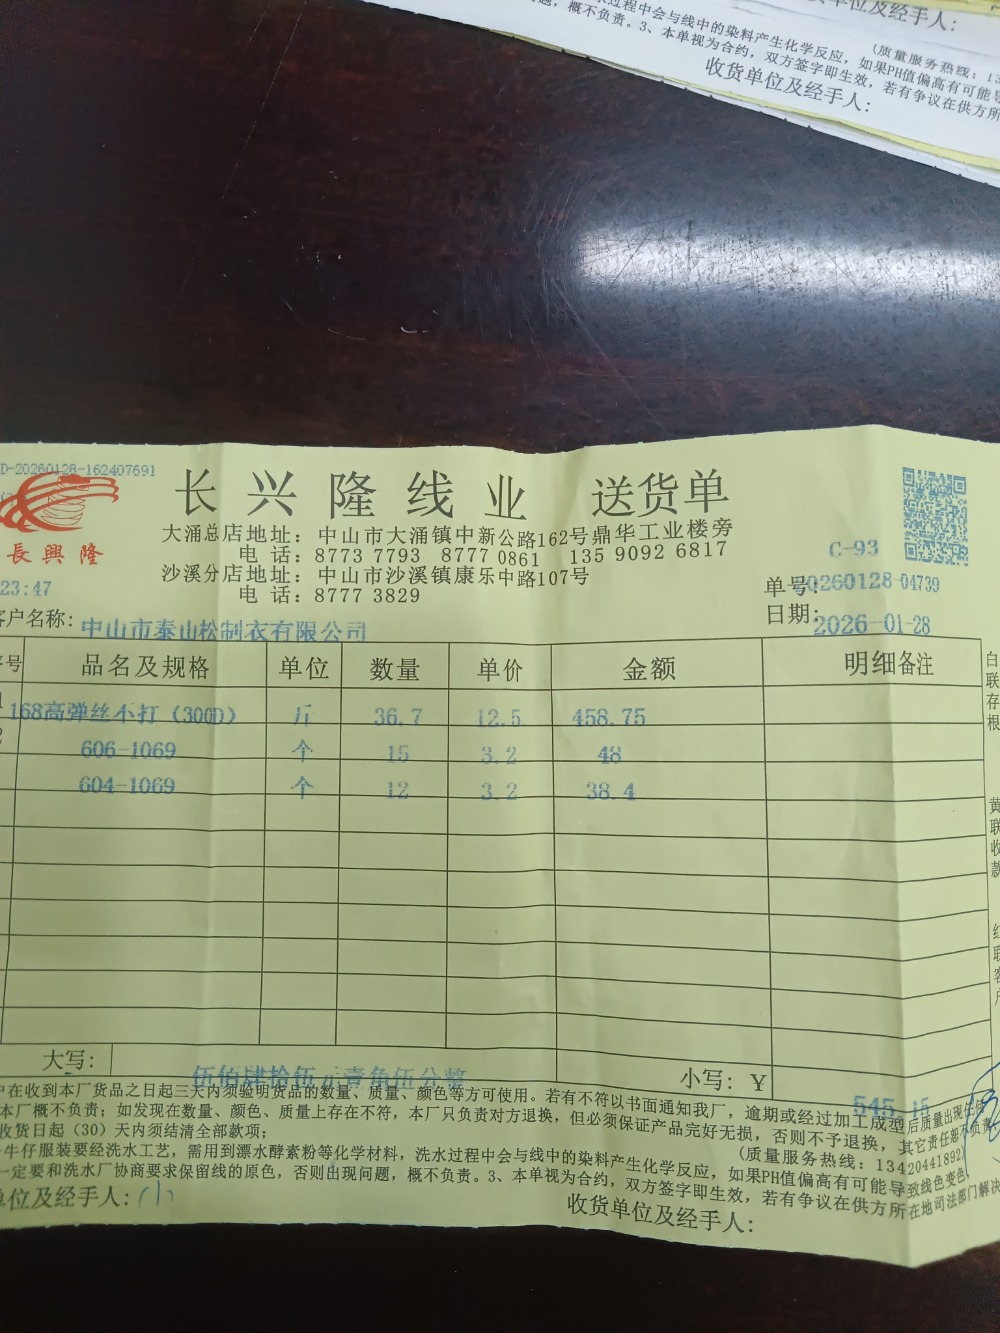 单位及经手人：
水过程中会与线中的染料产生化学反应，如果PH值偏高有可能导
概不负责。3、本单视为合约，双方签字即生效，若有争议在供方所
(质量服务热线：13
收货单位及经手人：
D-20260128-162407691
長興隆
长兴隆线业 送货单
大涌总店地址：中山市大涌镇中新公路162号鼎华工业楼旁
电 话：8773 7793 8777 0861 135 9092 6817
沙溪分店地址：中山市沙溪镇康乐中路107号
电 话：8777 3829
C-93
23:47
单号：20260128-04739
日期：2026-01-28
客户名称：中山市泰山松制衣有限公司
序号 品名及规格 单位 数量 单价 金额 明细备注
1 168高弹丝不打（300D） 斤 36.7 12.5 458.75
2 606-1069 个 15 3.2 48
604-1069 个 12 3.2 38.4
白联存根
黄联收款
红联客户
大写： 伍佰肆拾伍元壹角伍分整 小写：￥ 545.15
户在收到本厂货品之日起三天内须验明货品的数量、质量、颜色等方可使用。若有不符以书面通知我厂，逾期或经过加工成型后质量出现任何
本厂概不负责；如发现在数量、颜色、质量上存在不符，本厂只负责对方退换，但必须保证产品完好无损，否则不予退换，其它责任都不负责
收货日起（30）天内须结清全部款项；
(质量服务热线：13420441892)
牛仔服装要经洗水工艺，需用到漂水酵素粉等化学材料，洗水过程中会与线中的染料产生化学反应，如果PH值偏高有可能导致线色变色，
一定要和洗水厂协商要求保留线的原色，否则出现问题，概不负责。3、本单视为合约，双方签字即生效，若有争议在供方所在地司法部门解决
单位及经手人：
收货单位及经手人：